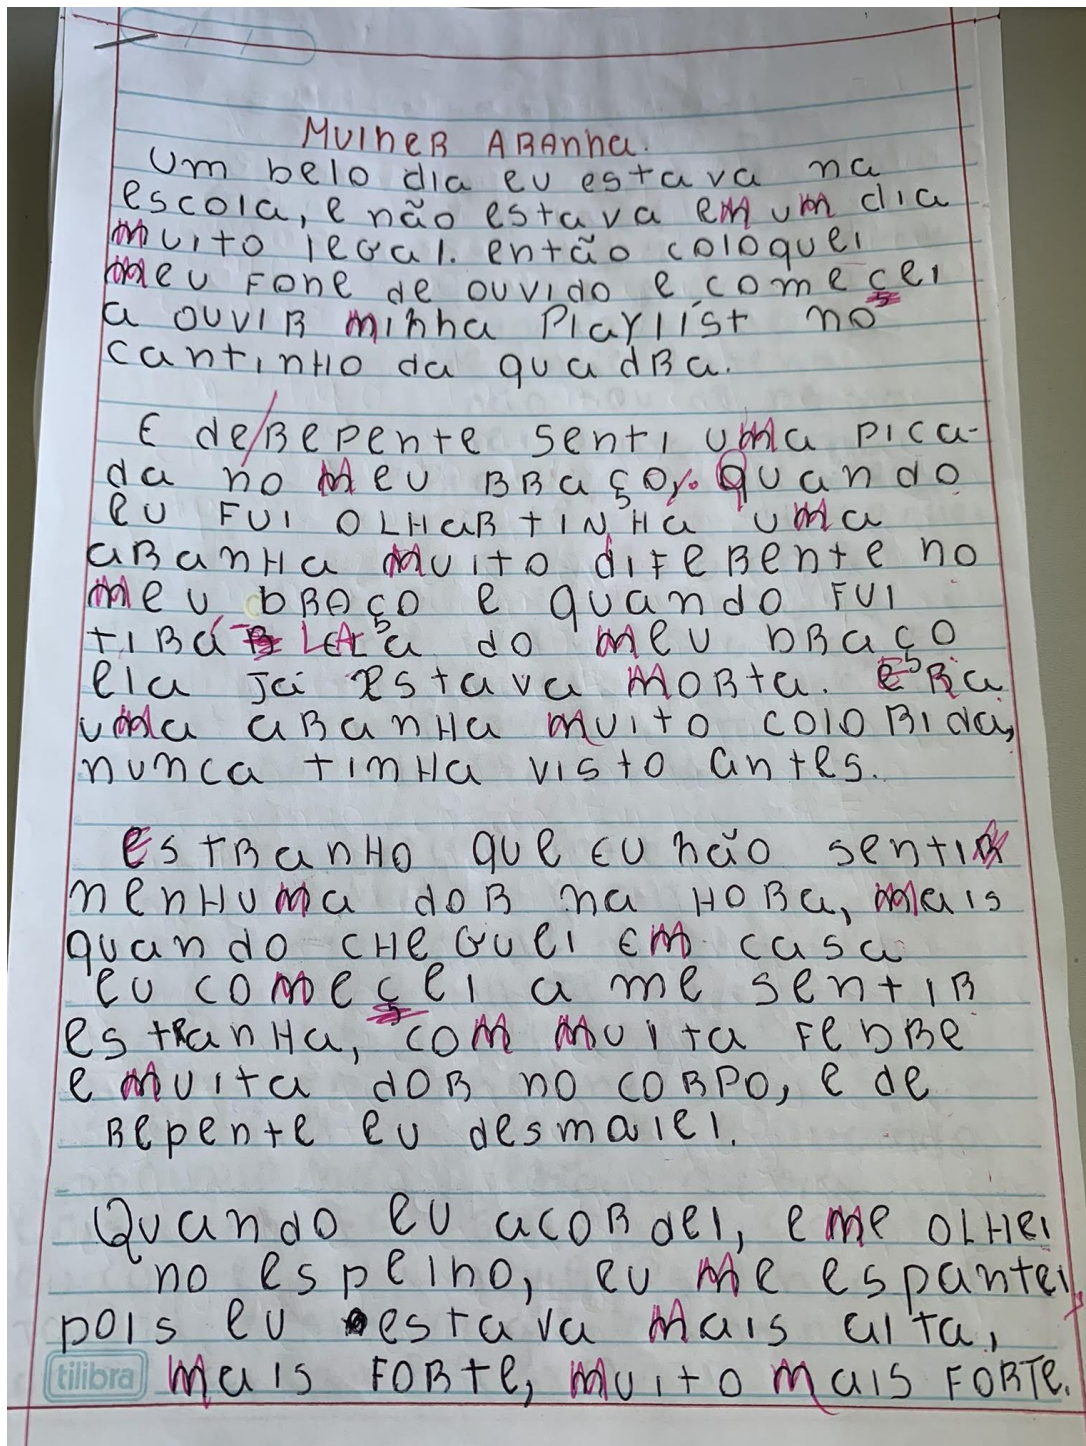 Mulher Aranha.
Um belo dia eu estava na
escola, e não estava em um dia
muito legal. então coloquei
meu fone de ouvido e começei
a ouvir minha Playlist no
cantinho da quadra.
E de/repente senti uma pica-
da no meu braço. Quando
eu fui olhar tinha uma
aranha muito diferente no
meu braço e quando fui
tirá-la do meu braço
ela já estava morta. Era
uma aranha muito colorida,
nunca tinha visto antes.
Estranho que eu não senti
nenhuma dor na hora, mais
quando cheguei em casa
eu começei a me sentir
estranha, com muita febre
e muita dor no corpo, e de
repente eu desmaiei.
Quando eu acordei, e me olhei
no espelho, eu me espantei,
pois eu estava mais alta,
mais forte, muito mais forte.
tilibra